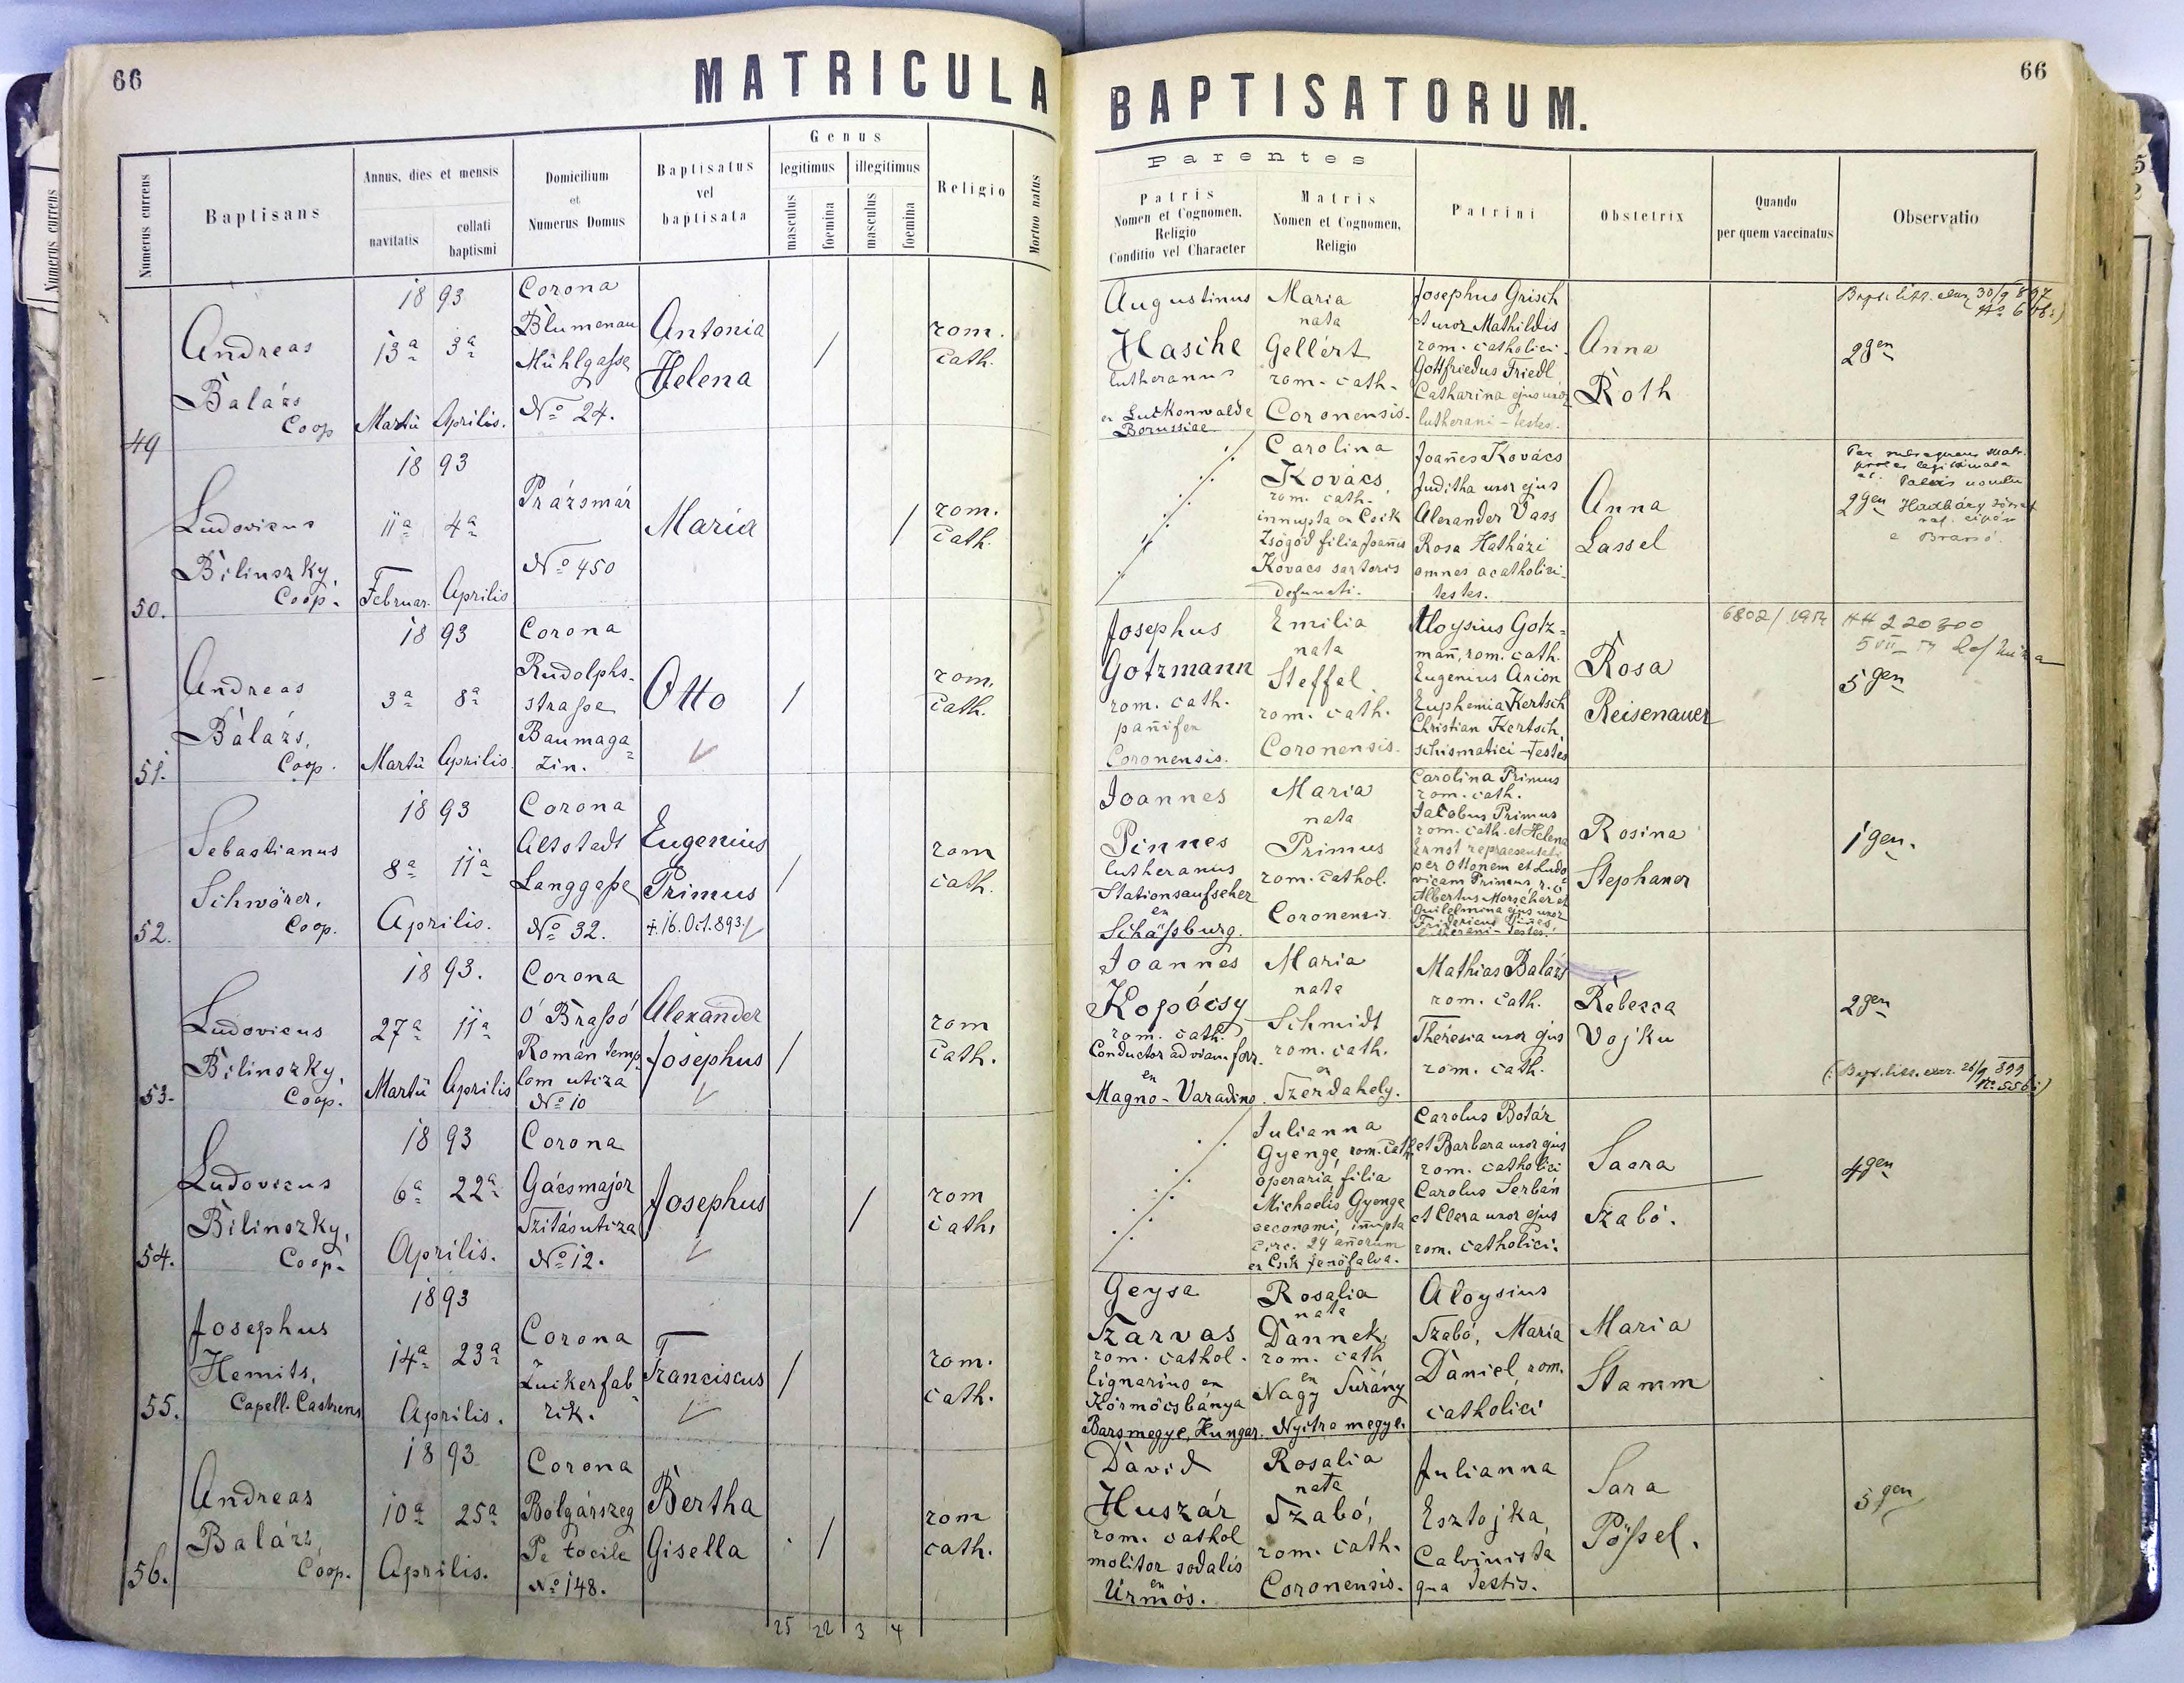 66
MATRICULA
Numerus currens
Baptisans
Annus, dies et mensis
navitatis
collati
baptismi
Domicilium
et
Numerus Domus
Baptisatus
vel
baptisata
Genus
legitimus
illegitimus
masculus
foemina
masculus
foemina
Religio
Mortuo natus
49
Andreas
Balázs
Coop
18 93
13a 3a
Martii Aprilis.
Corona
Blumenau
Mühlgaſse
No 24.
Antonia
Helena
/
rom.
cath.
50.
Ludovicus
Bilinszky,
Coop.
18 93
11a 4a
Februar. Aprilis
Prázsmár
No 450
Maria
/
rom.
cath.
51.
Andreas
Balázs,
Coop.
18 93
3a 8a
Martii Aprilis.
Corona
Rudolphs-
straſse
Baumaga=
zin.
Otto
/
rom.
cath.
52.
Sebastianus
Schwörer,
Coop.
18 93
8a 11a
Aprilis.
Corona
Altstadt
Langgaſse
No 32.
Eugenius
Primus
+.16. Oct. 893.
/
rom
cath.
53.
Ludovicus
Bilinszky,
Coop.
18 93.
27a 11a
Martii Aprilis
Corona
Ó Braſsó
Román temp=
lom utiza
No 10
Alexander
Josephus
/
rom
cath.
54.
Ludovicus
Bilinszky,
Coop.
18 93
6a 22a
Aprilis.
Corona
Gácsmajor
Szitás utiza
No 12.
Josephus
/
rom
cath.
55.
Josephus
Hemits,
Capell. Castrens
18 93
14a 23a
Aprilis.
Corona
Zuikerfab=
rik.
Franciscus
/
rom.
cath.
56.
Andreas
Balázs,
Coop.
18 93
10a 25a
Aprilis.
Corona
Bolgárszeg
Pe tocile
No 148.
Bertha
Gisella
/
rom
cath.
25 22 3 4
66
BAPTISATORUM.
Parentes
Patris
Nomen et Cognomen,
Religio
Conditio vel Character
Matris
Nomen et Cognomen,
Religio
Patrini
Obstetrix
Quando
per quem vaccinatus
Observatio
Augustinus
Hasche
lutheranus
ex Luckenwalde
Borussiae.
Maria
nata
Gellért
rom. cath.
Coronensis.
Josephus Grisch
et uxor Mathildis
rom. catholici.
Gottfriedus Friedl
Catharina ejus uxor
lutherani - testes.
Anna
Roth
Bapt. litt. exar. 30/9 897
No 6
2gen
Carolina
Kovács,
rom. cath.
innupta ex Csik
Zsögöd filia Joannis
Kovács sartoris
defuncti.
Joañes Kovács
Juditha uxor ejus
Alexander Vass
Rosa Hatházi
omnes acatholici-
testes.
Anna
Lassel
Per subsequens Matr.
proles legitimata
2gen
Josephus
Gotzmann
rom. cath.
pañifex
Coronensis.
Emilia
nata
Steffel
rom. cath.
Coronensis.
Aloysius Gotz=
mañ, rom. cath.
Eugenius Arion
Euphemia Kertsch
Christian Kertsch,
schismatici - testes
Rosa
Reisenauer
6802/1954
220300
5gen
Joannes
Pinnes
lutheranus
Stationsaufseher
ex
Schäſsburg.
Maria
nata
Primus
rom. cathol.
Coronensis.
Carolina Primus
rom. cath.
Jacobus Primus
rom. cath. et Helena
Ernst repraesentati
per Ottonem et Ludo=
vicam Primus, r. c.
Albertus Morscher et
Guilelmina ejus uxor
Fridericus Piñes,
lutherani - testes.
Rosina
Stephaner
1gen.
Joannes
Kopócsy
rom. cath.
Conductor ad viam ferr.
ex
Magno-Varadino.
Maria
nata
Schmidt
rom. cath.
ex
Szerdahely.
Mathias Balázs
rom. cath.
Theresia uxor ejus
rom. cath.
Rebecca
Vojku
2gen
(:Bapt. litt. exar. 26/9 899
No 556:)
Julianna
Gyenge, rom. cath.
operaria, filia
Michaelis Gyenge
oeconomi, iñupta
circ. 24 añorum
ex Csik Jenőfalva.
Carolus Botár
et Barbara uxor ejus
rom. catholici
Carolus Serbán
et Clara uxor ejus
rom. catholici.
Saara
Szabó.
4gen
Geysa
Szarvas
rom. cathol.
lignarius ex
Körmöcsbánya
Barsmegye, Hungar.
Rosalia
nata
Dannek,
rom. cath
ex
Nagy Surány
Nyitra megye.
Aloysius
Szabó, Maria
Dániel, rom.
catholici
Maria
Stamm
David
Huszár
rom. cathol
molitor sodalis
ex
Ürmös.
Rosalia
nata
Szabó,
rom. cath.
Coronensis.
Julianna
Esztojka,
Calvinista
qua testis.
Sara
Pöſsel.
5gen